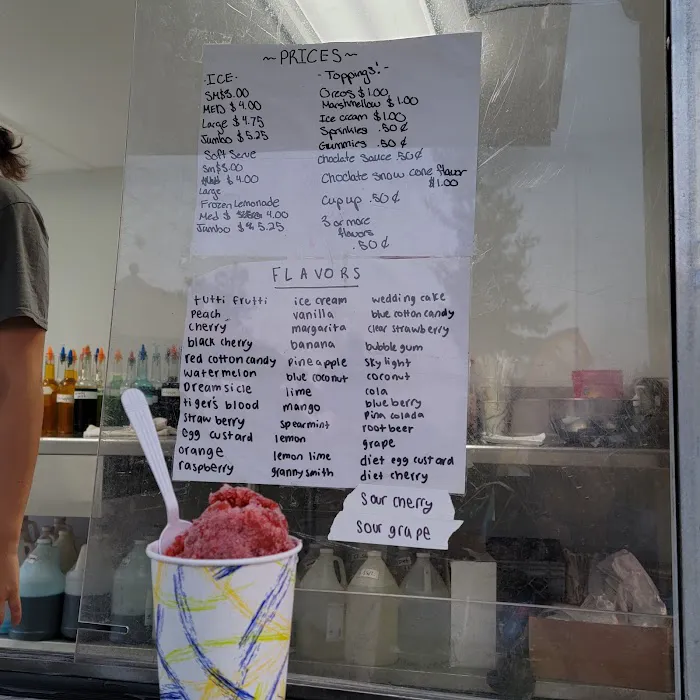 ~PRICES~
ICE
SM $3.00
MED $4.00
Large $4.75
Jumbo $5.25
Soft Serve
Sm $3.00
$4.00
Large
Frozen Lemonade
Med $ 4.00
Jumbo $ 5.25
-Toppings!-
Oreos $1.00
Marshmellow $1.00
Ice cream $1.00
Sprinkles .50¢
Gummies .50¢
Choclate sauce .50¢
Choclate snow cone flavor
$1.00
Cup up .50¢
3 or more
flavors
.50¢
FLAVORS
tutti frutti
peach
cherry
black cherry
red cotton candy
watermelon
Dreamsicle
tiger's blood
straw berry
egg custard
orange
raspberry
ice cream
vanilla
margarita
banana
pineapple
blue coconut
lime
mango
spearmint
lemon
lemon lime
granny smith
wedding cake
blue cotton candy
clear strawberry
bubble gum
sky light
coconut
cola
blue berry
pina colada
root beer
grape
diet egg custard
diet cherry
sour cherry
sour grape